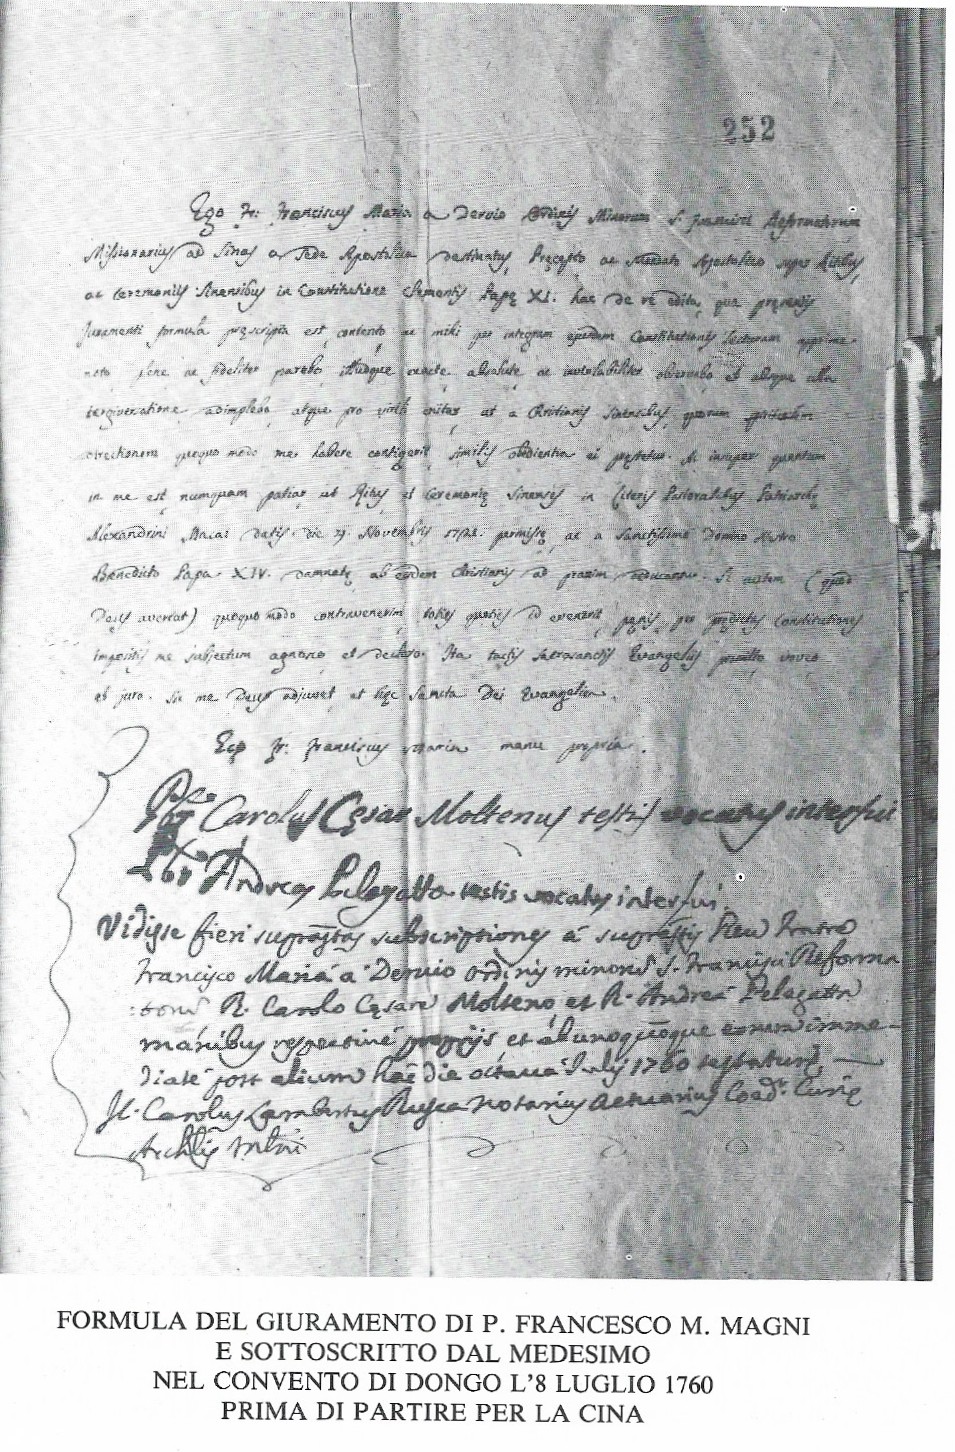 252
Ego Fr: Franciscus Maria a Dervio Ordinis Minorum S. Francisci Reformatorum
Missionarius ad Sinas a Sede Apostolica destinatus Pręcepto ac Mandato Apostolico super Ritibus
ac Ceremoniis Sinensibus in Constitutione Clementis Papę XI. hac de re edita, qua pręsentis
Juramenti formula pręscripta est contento ac mihi per integram ejusdem Constitutionis lecturam apprime
noto plene ac fideliter parebo illudque exacte absolute ac inviolabiliter observabo et absque ulla
tergiversatione adimplebo atque pro virili enitar ut a Christianis Sinensibus, quorum spiritualem
directionem quoquo modo me habere contigerit similis obedientia ei pręstetur. Ac insuper quantum
in me est numquam patiar ut Ritus et Ceremonię Sinenses in Literis Pastoralibus Patriarchę
Alexandrini Macai datis die Novembris permissę, ac a Sanctissimo Domino Nostro
Benedicto Papa XIV. damnatę ab eisdem Christianis ad praxim deducantur. Si autem (quod
Deus avertat) quoquo modo contravenerim toties quoties id evenerit pęnis per prędictas Constitutiones
impositis me subjectum agnosco et declaro. Ita tactis Sacrosanctis Evangeliis promitto voveo
et juro. Sic me Deus adjuvet et hęc Sancta Dei Evangelia.
Ego Fr. Franciscus Maria manu propria.
Pbr Carolus Cęsar Moltenus testis vocatus interfui
Pbr Andreas Pelegatta testis vocatus interfui.
Vidisse fieri suprascriptas subscriptiones á Rev Fratre
Francisco Mariá a Dervio ordinis minorum S. Francisci Reforma
torum R. Carolo Cęsare Molteno et R. Andreá Pelegatta
manibus respectivé proprijs et ab unoquoque eorum imme-
diaté post alium hac die octava Julij 1760 testatur
Carolus Lambertus Rusca Notarius Actuarius Curię
FORMULA DEL GIURAMENTO DI P. FRANCESCO M. MAGNI
E SOTTOSCRITTO DAL MEDESIMO
NEL CONVENTO DI DONGO L'8 LUGLIO 1760
PRIMA DI PARTIRE PER LA CINA